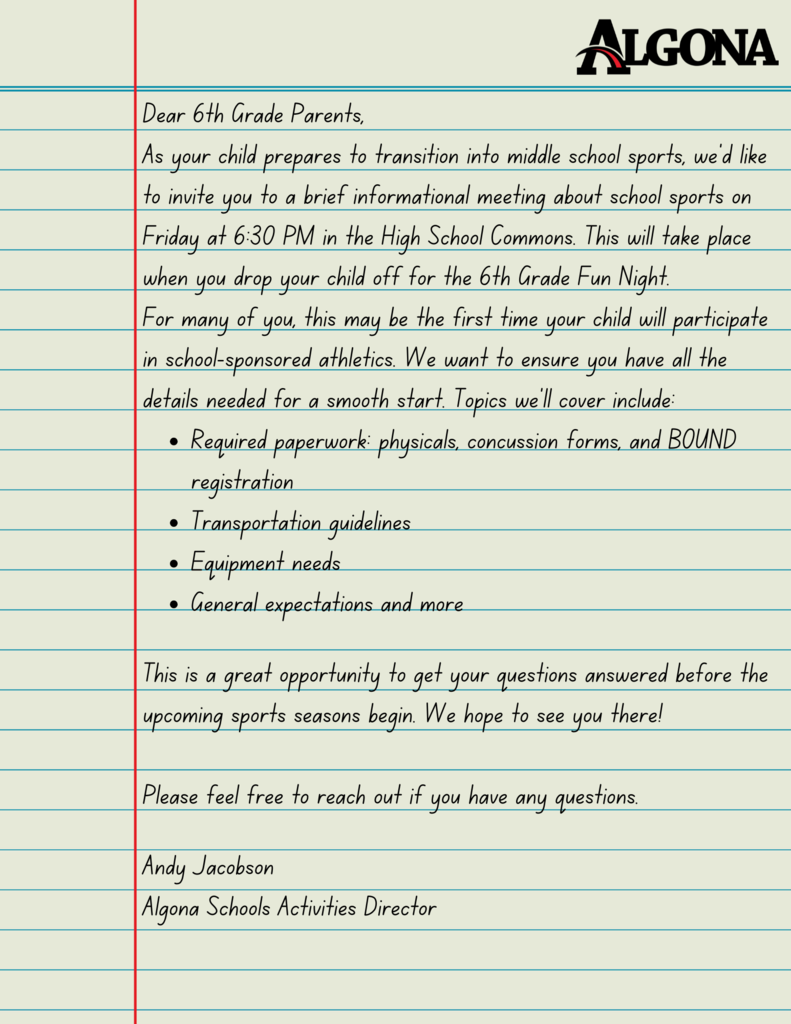 ALGONA
Dear 6th Grade Parents,
As your child prepares to transition into middle school sports, we'd like
to invite you to a brief informational meeting about school sports on
Friday at 6:30 PM in the High School Commons. This will take place
when you drop your child off for the 6th Grade Fun Night.
For many of you, this may be the first time your child will participate
in school-sponsored athletics. We want to ensure you have all the
details needed for a smooth start. Topics we'll cover include:
• Required paperwork: physicals, concussion forms, and BOUND
registration
• Transportation guidelines
• Equipment needs
• General expectations and more
This is a great opportunity to get your questions answered before the
upcoming sports seasons begin. We hope to see you there!
Please feel free to reach out if you have any questions.
Andy Jacobson
Algona Schools Activities Director